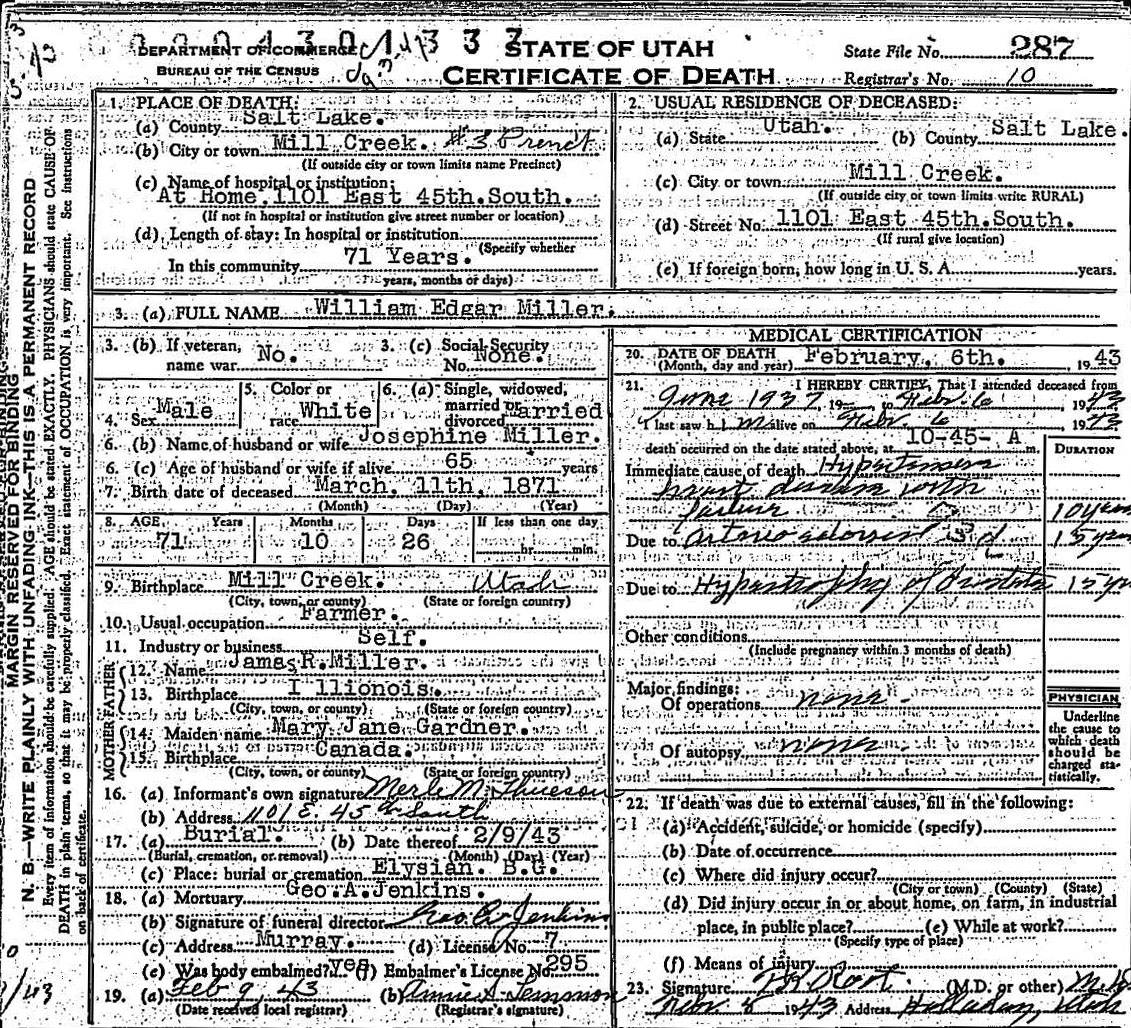 DEPARTMENT OF COMMERCE
BUREAU OF THE CENSUS
STATE OF UTAH
CERTIFICATE OF DEATH
State File No. 287
Registrar's No. 10
MARGIN RESERVED FOR BINDING
N. B.—WRITE PLAINLY WITH UNFADING INK—THIS IS A PERMANENT RECORD
Every item of information should be carefully supplied. AGE should be stated EXACTLY. PHYSICIANS should state CAUSE OF
DEATH in plain terms, so that it may be properly classified. Exact statement of OCCUPATION is very important. See instructions
on back of certificate.
1. PLACE OF DEATH:
(a) County Salt Lake.
(b) City or town Mill Creek. #3
(If outside city or town limits name Precinct)
(c) Name of hospital or institution:
At Home 1101 East 45th.South.
(If not in hospital or institution give street number or location)
(d) Length of stay: In hospital or institution
(Specify whether
In this community 71 Years.
years, months or days)
2. USUAL RESIDENCE OF DECEASED:
(a) State Utah. (b) County Salt Lake.
(c) City or town Mill Creek.
(If outside city or town limits write RURAL)
(d) Street No. 1101 East 45th.South.
(If rural give location)
(e) If foreign born, how long in U. S. A. years.
3. (a) FULL NAME William Edgar Miller.
3. (b) If veteran, name war No.
3. (c) Social Security No. None.
4. Sex Male
5. Color or race White
6. (a) Single, widowed, married or divorced Married
6. (b) Name of husband or wife Josephine Miller.
6. (c) Age of husband or wife if alive 65 years
7. Birth date of deceased March, 11th, 1871
(Month) (Day) (Year)
8. AGE Years Months Days If less than one day
71 10 26 hr. min.
9. Birthplace Mill Creek. Utah
(City, town, or county) (State or foreign country)
10. Usual occupation Farmer.
11. Industry or business Self.
FATHER
12. Name James R.Miller.
13. Birthplace Illionois.
(City, town, or county) (State or foreign country)
MOTHER
14. Maiden name Mary Jane Gardner.
15. Birthplace Canada.
(City, town, or county) (State or foreign country)
16. (a) Informant's own signature Merle M. Thueson
(b) Address 1101 E. 45th South
17. (a) Burial. (b) Date thereof 2/9/43
(Burial, cremation, or removal) (Month) (Day) (Year)
(c) Place: burial or cremation Elysian. B.G.
18. (a) Mortuary Geo.A.Jenkins.
(b) Signature of funeral director Geo. A. Jenkins
(c) Address Murray. (d) License No. 7
(e) Was body embalmed? yes (f) Embalmer's License No. 295
19. (a) Feb 9, 43 (b) Annie
(Date received local registrar) (Registrar's signature)
MEDICAL CERTIFICATION
20. DATE OF DEATH February, 6th. 1943
(Month, day and year)
21. I HEREBY CERTIFY, That I attended deceased from
June 1937, 19 to Febr. 6 1943
I last saw h im alive on Febr. 6 1943
death occurred on the date stated above, at 10-45- A m.
DURATION
Immediate cause of death Hypertensive
heart disease with
failure 10 years
Due to Arteriosclerosis 15 years
Due to Hypertrophy of Prostate 15 yr
Other conditions
(Include pregnancy within 3 months of death)
Major findings:
Of operations none -
Of autopsy none
PHYSICIAN
Underline
the cause to
which death
should be
charged sta-
tistically.
22. If death was due to external causes, fill in the following:
(a) Accident, suicide, or homicide (specify)
(b) Date of occurrence
(c) Where did injury occur?
(City or town) (County) (State)
(d) Did injury occur in or about home, on farm, in industrial
place, in public place? (e) While at work?
(Specify type of place)
(f) Means of injury
23. Signature (M.D. or other) M.D.
1943 Address Holladay, Utah